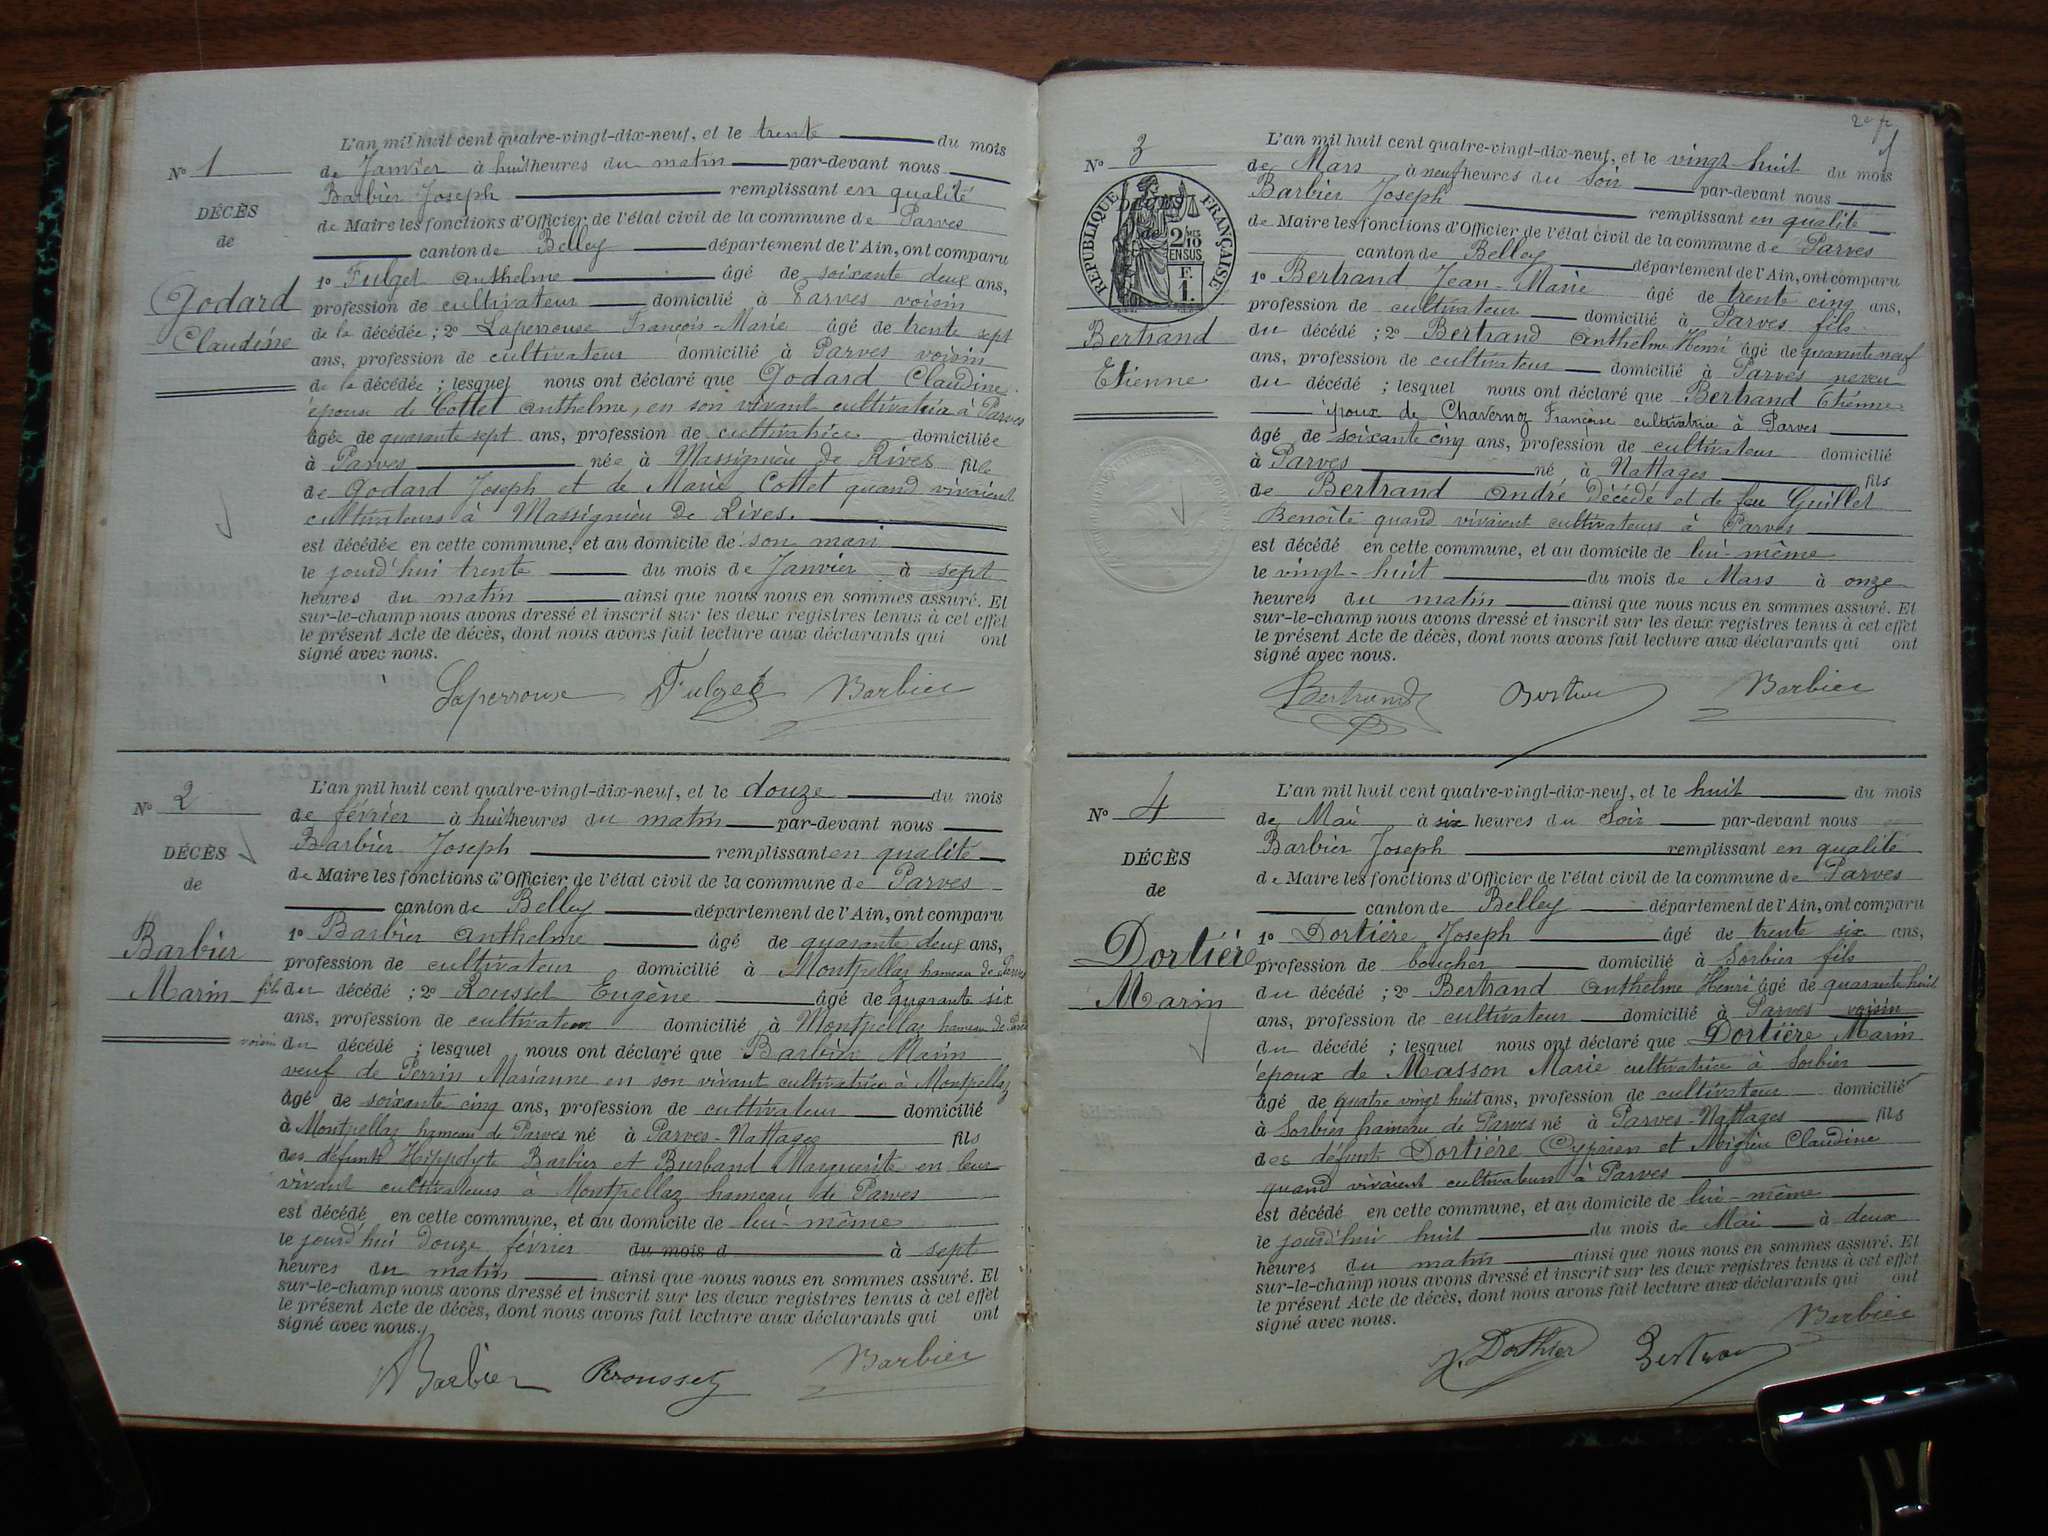 N° 1
DÉCÈS
de
Godard
Claudine
L'an mil huit cent quatre-vingt-dix-neuf, et le trente du mois
de Janvier à huit heures du matin par-devant nous
Barbier Joseph remplissant en qualité
de Maire les fonctions d'Officier de l'état civil de la commune de Parves
canton de Belley département de l'Ain, ont comparu
1° Fulget Anthelme âgé de soixante deux ans,
profession de cultivateur domicilié à Parves voisin
de la décédée ; 2° Laperrouse François-Marie âgé de trente sept
ans, profession de cultivateur domicilié à Parves voisin
de la décédée ; lesquels nous ont déclaré que Godard Claudine
épouse de Cottet Anthelme, en son vivant cultivateur à Parves
âgée de quarante sept ans, profession de cultivatrice domiciliée
à Parves née à Massignieu de Rives fille
de Godard Joseph et de Marie Cottet quand vivaient
cultivateurs à Massignieu de Rives.
est décédée en cette commune, et au domicile de son mari
le jourd'hui trente du mois de Janvier à sept
heures du matin ainsi que nous nous en sommes assuré. Et
sur-le-champ nous avons dressé et inscrit sur les deux registres tenus à cet effet
le présent Acte de décès, dont nous avons fait lecture aux déclarants qui ont
signé avec nous.
Laperrouse Fulget Barbier
N° 2
DÉCÈS
de
Barbier
Marin
L'an mil huit cent quatre-vingt-dix-neuf, et le douze du mois
de février à huit heures du matin par-devant nous
Barbier Joseph remplissant en qualité
de Maire les fonctions d'Officier de l'état civil de la commune de Parves
canton de Belley département de l'Ain, ont comparu
1° Barbier Anthelme âgé de quarante deux ans,
profession de cultivateur domicilié à Montpellaz hameau de Parves
fils du décédé ; 2° Rousset Eugène âgé de quarante six
ans, profession de cultivateur domicilié à Montpellaz hameau de Parves
voisin du décédé ; lesquels nous ont déclaré que Barbier Marin
veuf de Perrin Marianne en son vivant cultivatrice à Montpellaz
âgé de soixante cinq ans, profession de cultivateur domicilié
à Montpellaz hameau de Parves né à Parves-Nattages fils
des défunts Hippolyte Barbier et Burband Marguerite en leur
vivant cultivateurs à Montpellaz hameau de Parves
est décédé en cette commune, et au domicile de lui-même
le jourd'hui douze février du mois d à sept
heures du matin ainsi que nous nous en sommes assuré. Et
sur-le-champ nous avons dressé et inscrit sur les deux registres tenus à cet effet
le présent Acte de décès, dont nous avons fait lecture aux déclarants qui ont
signé avec nous.
A Barbier Rousset Barbier
N° 3
DÉCÈS
de
RÉPUBLIQUE FRANÇAISE
2/10 MES
EN SUS
F.
1.
Bertrand
Etienne
1
L'an mil huit cent quatre-vingt-dix-neuf, et le vingt huit du mois
de Mars à neuf heures du soir par-devant nous
Barbier Joseph remplissant en qualité
de Maire les fonctions d'Officier de l'état civil de la commune de Parves
canton de Belley département de l'Ain, ont comparu
1° Bertrand Jean-Marie âgé de trente cinq ans,
profession de cultivateur domicilié à Parves fils
du décédé ; 2° Bertrand Anthelme Henri âgé de quarante neuf
ans, profession de cultivateur domicilié à Parves neveu
du décédé ; lesquels nous ont déclaré que Bertrand Etienne
époux de Chavernoz Françoise cultivatrice à Parves
âgé de soixante cinq ans, profession de cultivateur domicilié
à Parves né à Nattages fils
de Bertrand André décédé et de feu Guillet
Benoîte quand vivaient cultivateurs à Parves
est décédé en cette commune, et au domicile de lui-même
le vingt-huit du mois de Mars à onze
heures du matin ainsi que nous nous en sommes assuré. Et
sur-le-champ nous avons dressé et inscrit sur les deux registres tenus à cet effet
le présent Acte de décès, dont nous avons fait lecture aux déclarants qui ont
signé avec nous.
Bertrand Bertrand Barbier
N° 4
DÉCÈS
de
Dortière
Marin
L'an mil huit cent quatre-vingt-dix-neuf, et le huit du mois
de Mai à six heures du soir par-devant nous
Barbier Joseph remplissant en qualité
de Maire les fonctions d'Officier de l'état civil de la commune de Parves
canton de Belley département de l'Ain, ont comparu
1° Dortière Joseph âgé de trente six ans,
profession de boucher domicilié à Sorbier fils
du décédé ; 2° Bertrand Anthelme Henri âgé de quarante huit
ans, profession de cultivateur domicilié à Parves voisin
du décédé ; lesquels nous ont déclaré que Dortière Marin
époux de Masson Marie cultivatrice à Sorbier
âgé de quatre vingt huit ans, profession de cultivateur domicilié
à Sorbier hameau de Parves né à Parves-Nattages fils
des défunts Dortière Cyprien et Moigieu Claudine
quand vivaient cultivateurs à Parves
est décédé en cette commune, et au domicile de lui-même
le jourd'hui huit du mois de Mai à deux
heures du matin ainsi que nous nous en sommes assuré. Et
sur-le-champ nous avons dressé et inscrit sur les deux registres tenus à cet effet
le présent Acte de décès, dont nous avons fait lecture aux déclarants qui ont
signé avec nous.
J. Dorthier Bertrand Barbier